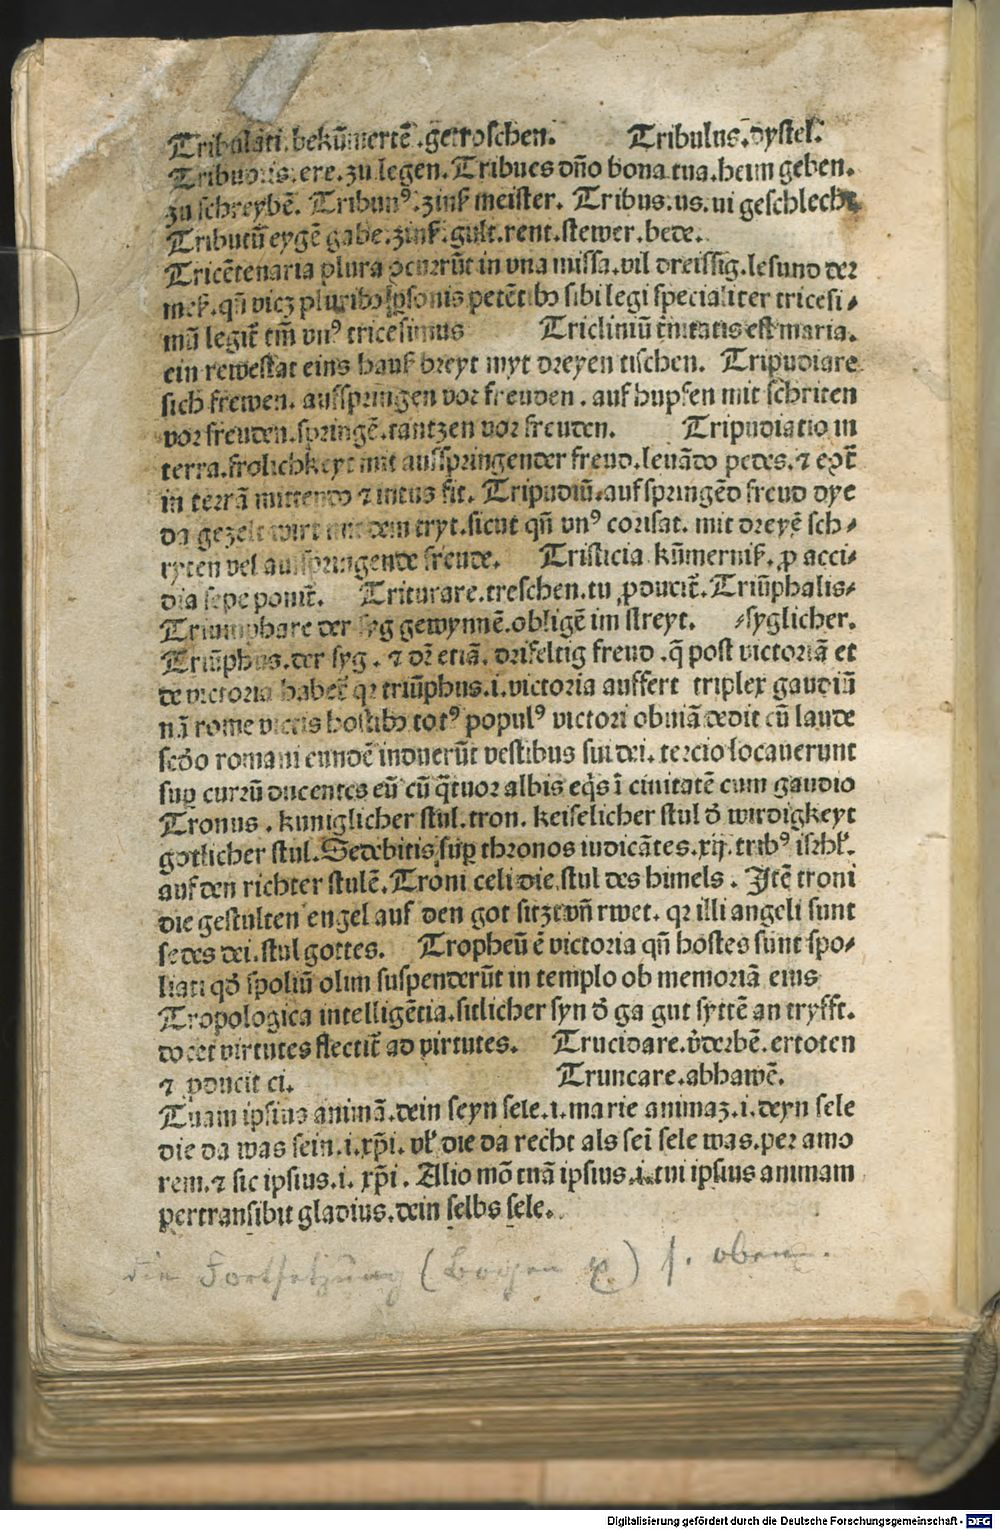 Tribulati.bekūmertē.getroschen. Tribulus.dystel.
Tribuo.is.ere.zu legen.Tribues dño bona tua.heim geben.
zu schreybē. Tribunꝰ.zinß meister. Tribus.us.ui geschlecht
Tributū eygē gabe.zinß.gult.rent.stewer.bede.
Tricētenaria plura in vna missa.vil dreissig.lesund der
meß.qñ petētibꝫ sibi legi specialiter tricesi⸗
mū legit̄ tm̄ vnꝰ tricesimus Tricliniū tinitatis est maria.
ein rewestat eins hauß breyt myt dreyen tischen. Tripudiare
sich frewen. ausspringen vor freuden. auf hupfen mit schriten
vor freuden.springē.tantzen vor freuden. Tripudiatio in
terra.frolichkeyt mit ausspringender freud.leuādo pedes.⁊ eꝑt̄
in terrā mittendo ⁊ intus fit. Tripudiū.auf springēd freud dye
da gezelt wirt mit dem tryt.sicut qñ vnꝰ corisat. mit dreyē sch⸗
ryten vel ausspringende freude. Tristicia kūmerniß.ꝓ acci⸗
dia sepe ponit̄. Triturare.treschen.tu ꝓducit̄.Triūphalis⸗
Triumphare der syg gewynnē.obligē im streyt. ⸗syglicher.
Triūphus.der syg. ⁊ dr̄ etiā. drifeltig freud .q̄ post victoriā et
de victoria habet̄ qꝛ triūphus.i.victoria auffert triplex gaudiū
nā rome victis hostibꝫ totꝰ populꝰ victori obuiā dedit cū laude
scd̄o romani eundē induerūt vestibus sui dei. tercio locauerunt
suꝑ currū ducentes eū cū q̄tuor albis eq̄s ī ciuitatē cum gaudio
Tronus. kuniglicher stul.tron. keiselicher stul d̄ wirdigkeyt
gotlicher stul.Sedebitis suꝑ thronos iudicātes.xij.tribꝰ isrhl̄.
auf den richter stulē.Troni celi die stul des himels. Itē troni
die gestulten engel auf den got sitzt vñ rwet. qꝛ illi angeli sunt
sedes dei.stul gottes. Tropheū ē victoria qñ hostes sunt spo⸗
liati qd̄ spoliū olim suspenderūt in templo ob memoriā eius
Tropologica intelligētia.sitlicher syn d̄ ga gut syttē an tryfft.
docet virtutes flectit̄ ad virtutes. Trucidare.v̄derbē.ertoten
⁊ ꝓducit ci. Truncare.abhawē.
Tuam ipsius animā.dein seyn sele.i.marie animaꝫ.i.deyn sele
die da was sein.i.xp̄i. vl̄ die da recht als sei sele was.per amo
rem.⁊ sic ipsius.i. xp̄i. Alio mō tuā ipsius.i.tui ipsius animam
pertransibit gladius.dein selbs sele.
die Fortsetzung (Bogen x.) s. oben.
Digitalisierung gefördert durch die Deutsche Forschungsgemeinschaft - DFG